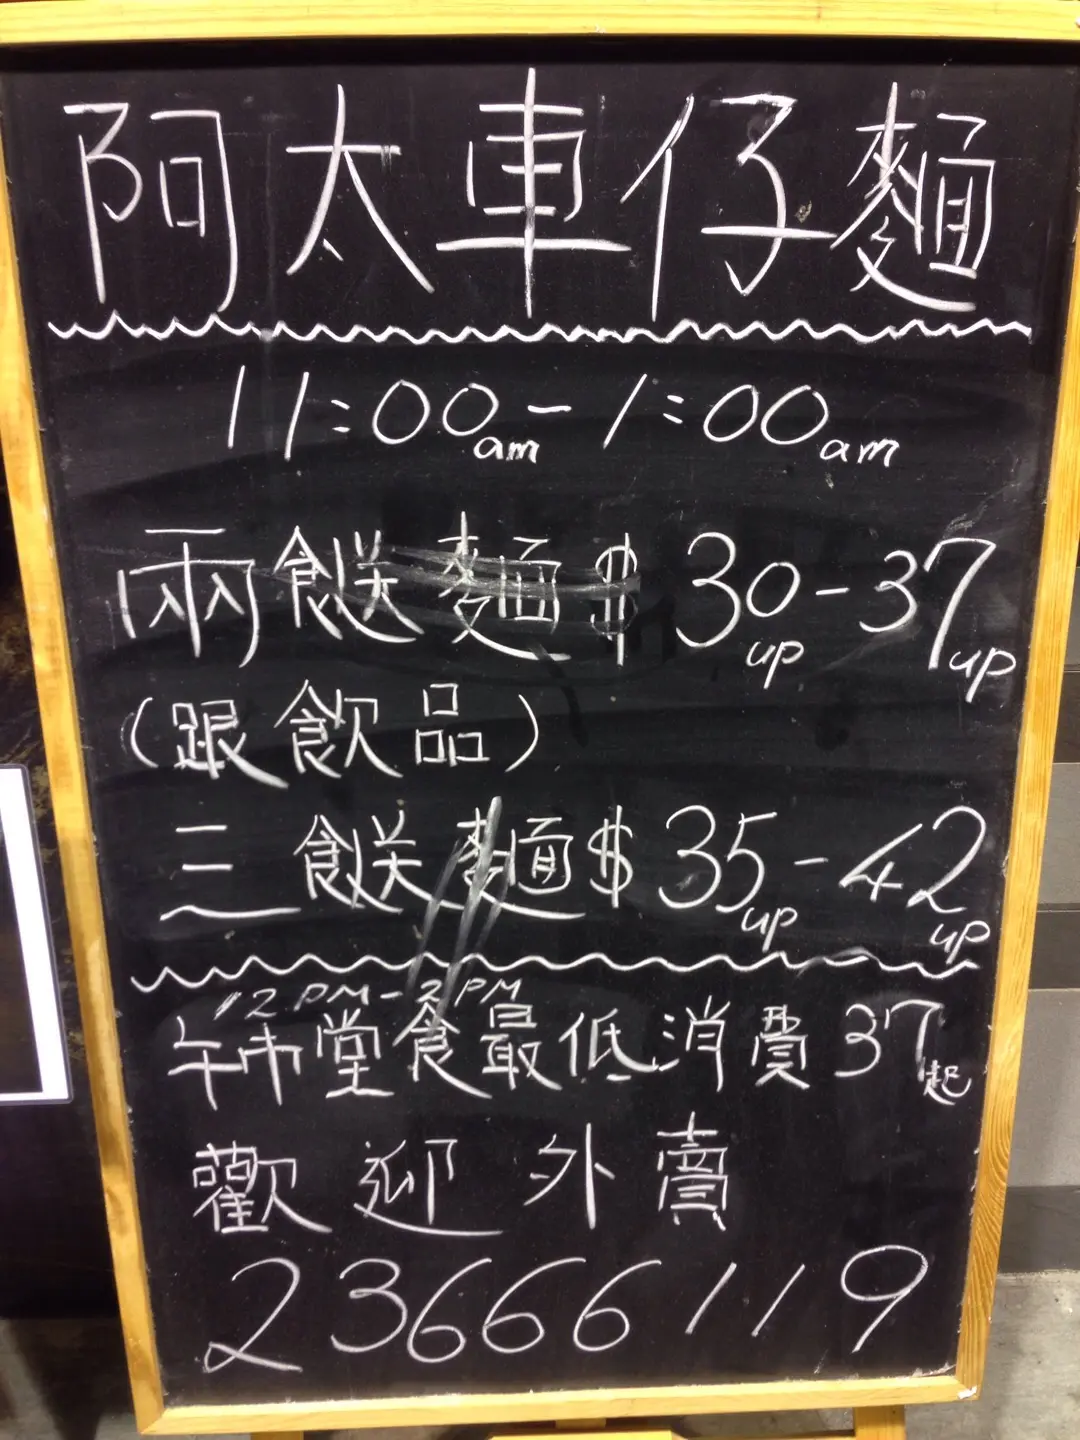 阿太車仔麵
11:00am-1:00am
兩餸麵$30up-37up
(跟飲品)
三餸麵$35up-42up
12PM-2PM
午市堂食最低消費37起
歡迎外賣
23666119